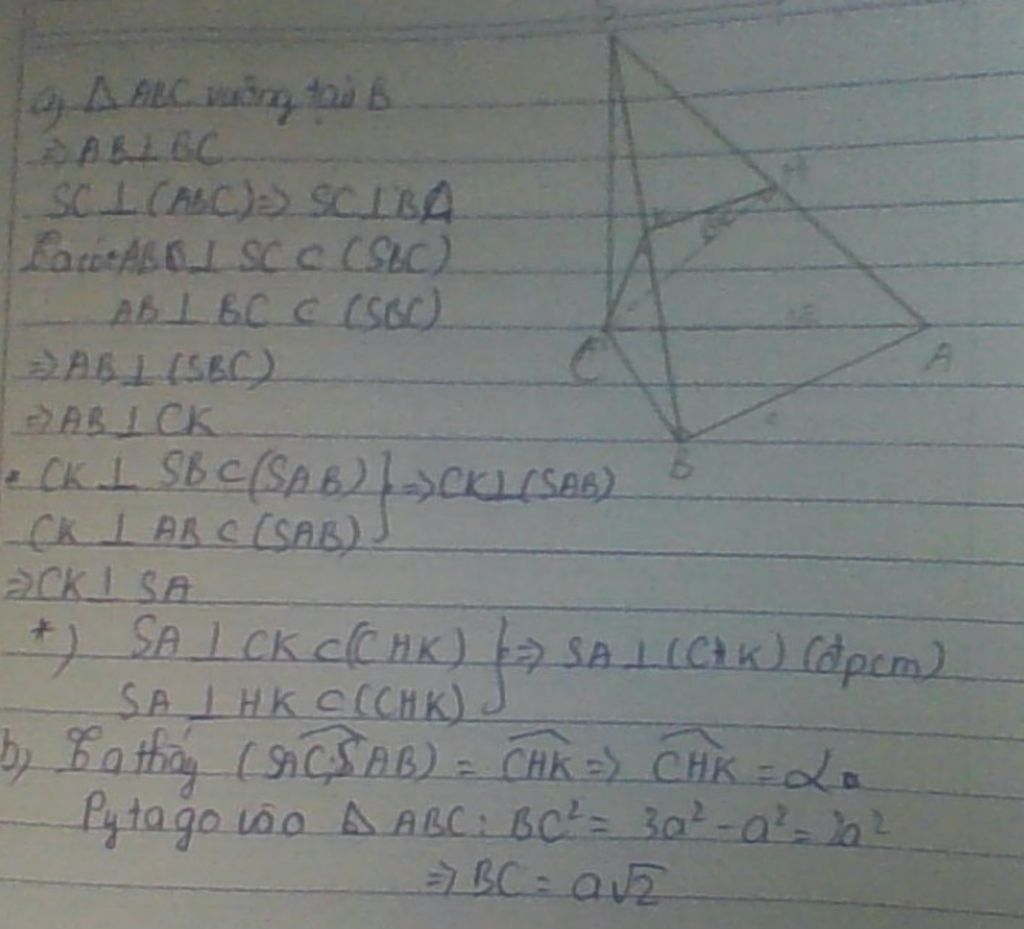 a) Δ ABC vuông tại B
⇒ AB ⊥ BC
SC ⊥ (ABC) ⇒ SC ⊥ BA
Ta có: AB ⊥ SC ⊂ (SBC)
AB ⊥ BC ⊂ (SBC)
⇒ AB ⊥ (SBC)
⇒ AB ⊥ CK
• CK ⊥ SB ⊂ (SAB) } ⇒ CK ⊥ (SAB)
CK ⊥ AB ⊂ (SAB)
⇒ CK ⊥ SA
*) SA ⊥ CK ⊂ (CHK) } ⇒ SA ⊥ (CHK) (đpcm)
SA ⊥ HK ⊂ (CHK)
b) Ta thấy (SAC, SAB) = CHK ⇒ CHK = α
Pytago vào Δ ABC: BC² = 3a² - a² = 2a²
⇒ BC = a√2
H
K
C
A
B